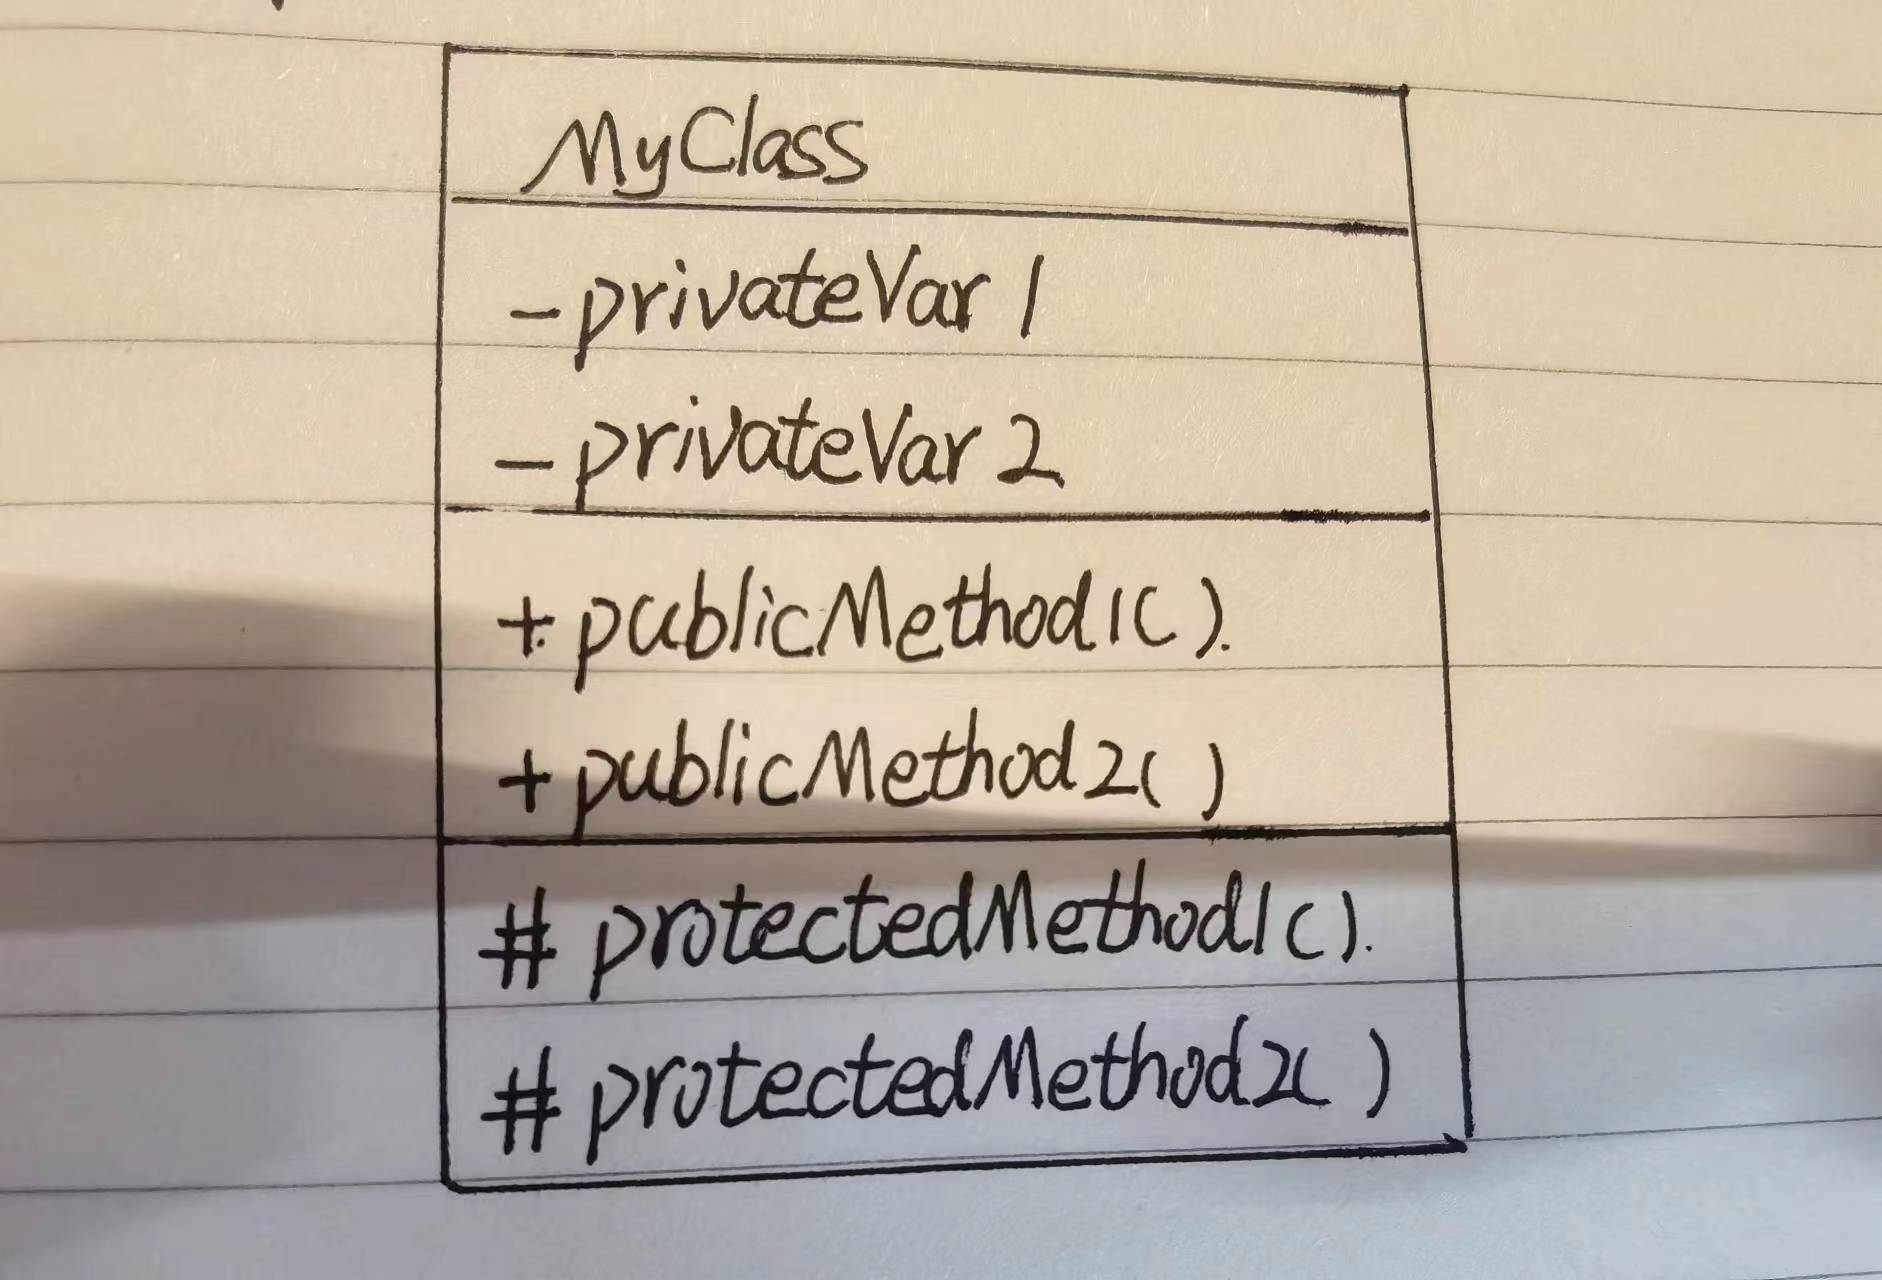 MyClass
- privateVar 1
- privateVar 2
+ publicMethod1( ).
+ publicMethod2( )
# protectedMethod1( ).
# protectedMethod2( )